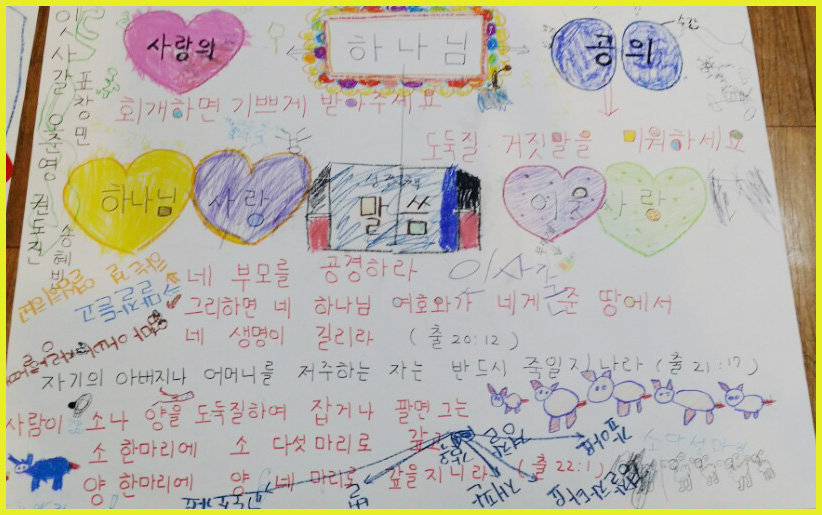 사랑의 하나님 공의
회개하면 기쁘게 받아주세요
도둑질·거짓말을 미워하세요
하나님 사랑 말씀 이웃사랑
네 부모를 공경하라 이사갈
그리하면 네 하나님 여호와가 네게 준 땅에서
네 생명이 길리라 (출 20:12)
자기의 아버지나 어머니를 저주하는 자는 반드시 죽일지니라 (출 21:17)
사람이 소나 양을 도둑질하여 잡거나 팔면 그는
소 한마리에 소 다섯마리로 갚고
양 한마리에 양 네 마리로 갚을지니라 (출 22:1)
이사갈
표창민
송혜빈
경찰
갚아요
재판
벌